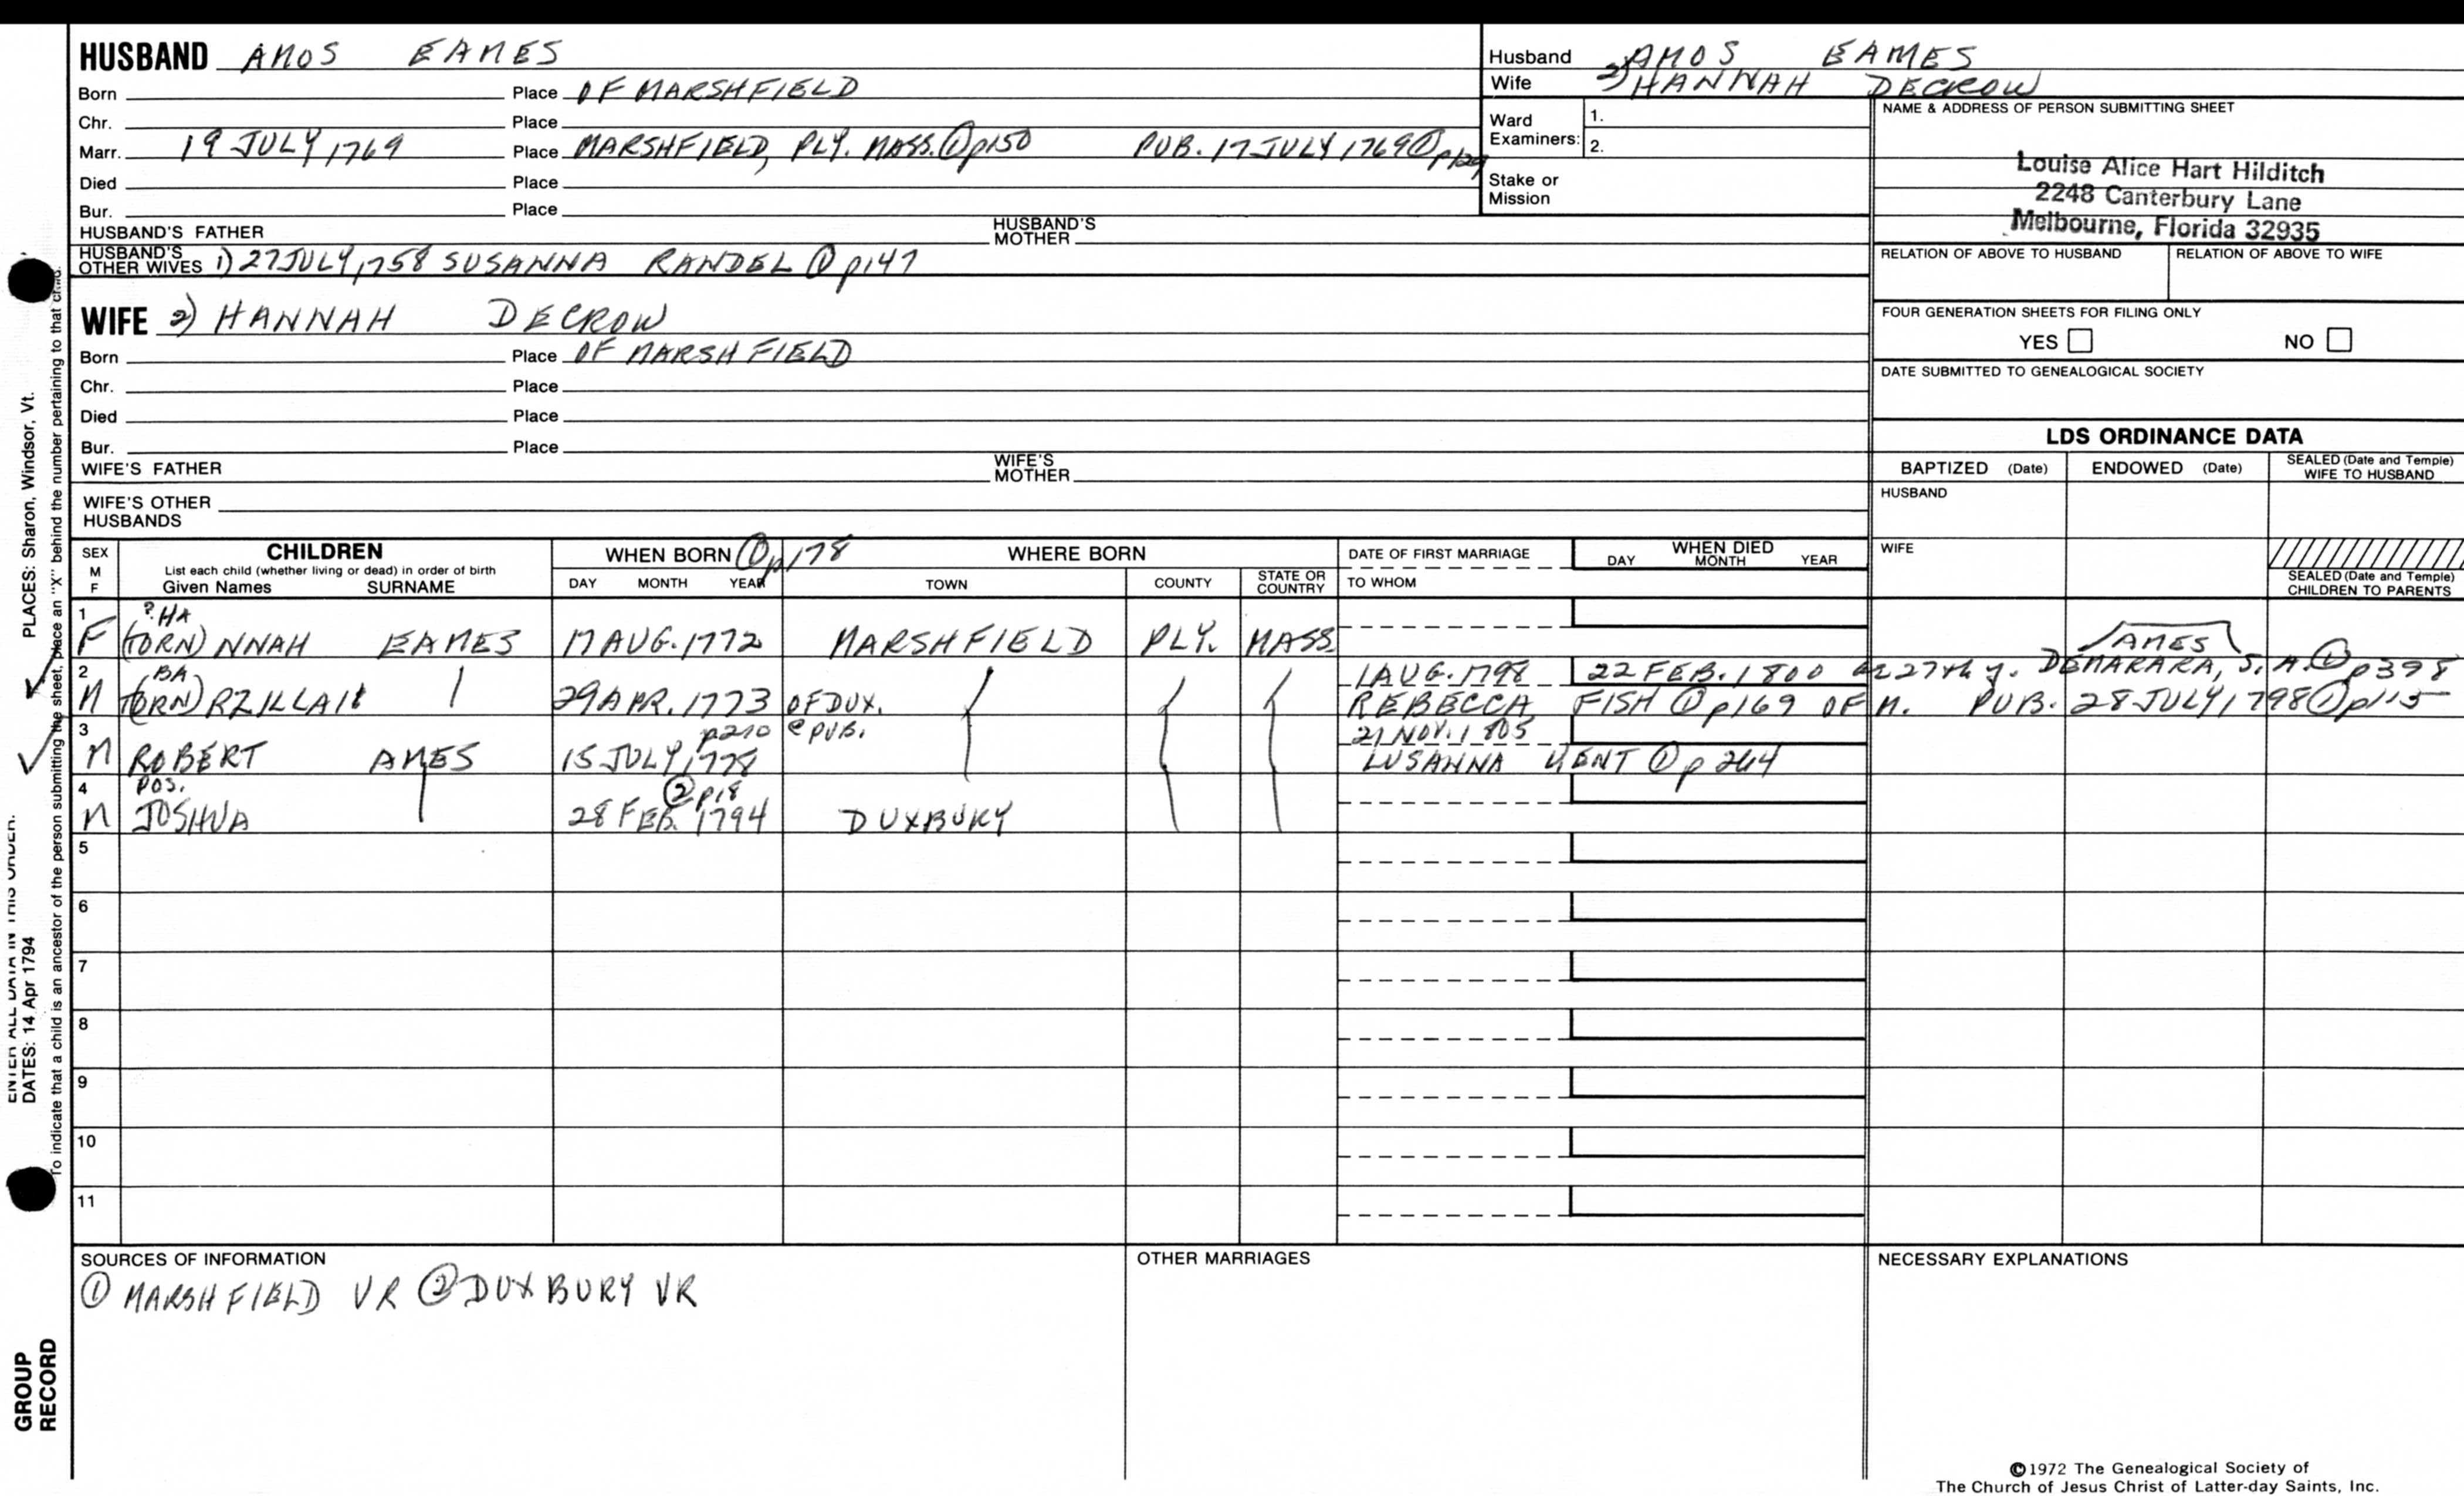 HUSBAND AMOS EAMES
Born Place OF MARSHFIELD
Chr. Place
Marr. 19 JULY 1769 Place MARSHFIELD, PLY. MASS. ① p150 PUB. 17 JULY 1769 ① p129
Died Place
Bur. Place
HUSBAND'S FATHER HUSBAND'S MOTHER
HUSBAND'S OTHER WIVES 1) 27 JULY, 1758 SUSANNA RANDEL ① p147
WIFE 2) HANNAH DECROW
Born Place OF MARSHFIELD
Chr. Place
Died Place
Bur. Place
WIFE'S FATHER WIFE'S MOTHER
WIFE'S OTHER HUSBANDS
Husband AMOS EAMES
Wife 2) HANNAH DECROW
Ward Examiners: 1.
2.
Stake or Mission
NAME & ADDRESS OF PERSON SUBMITTING SHEET
Louise Alice Hart Hilditch
2248 Canterbury Lane
Melbourne, Florida 32935
RELATION OF ABOVE TO HUSBAND RELATION OF ABOVE TO WIFE
FOUR GENERATION SHEETS FOR FILING ONLY
YES NO
DATE SUBMITTED TO GENEALOGICAL SOCIETY
LDS ORDINANCE DATA
BAPTIZED (Date) ENDOWED (Date) SEALED (Date and Temple) WIFE TO HUSBAND
HUSBAND
WIFE
SEALED (Date and Temple) CHILDREN TO PARENTS
SEX M F
CHILDREN
List each child (whether living or dead) in order of birth
Given Names SURNAME
WHEN BORN ① p178
DAY MONTH YEAR
WHERE BORN
TOWN COUNTY STATE OR COUNTRY
DATE OF FIRST MARRIAGE
TO WHOM
WHEN DIED
DAY MONTH YEAR
1 ? HA
F (TORN) NNAH EAMES 17 AUG. 1772 MARSHFIELD PLY. MASS
AMES
2 BA 1 AUG. 1798 22 FEB. 1800 ae 27th y. DEMARARA, S. A. ① p398
M (TORN) RZILLAI 29 APR. 1773 OF DUX. REBECCA FISH ① p169 OF M. PUB. 28 JULY 1798 ① p115
3 p210 @ PUB. 21 NOV. 1805
M ROBERT AMES 15 JULY, 1778 LUSANNA KENT ① p 264
4 POS. ② p18
M JOSHUA 28 FEB. 1794 DUXBURY
5
6
7
8
9
10
11
SOURCES OF INFORMATION
① MARSHFIELD VR ② DUXBURY VR
OTHER MARRIAGES
NECESSARY EXPLANATIONS
©1972 The Genealogical Society of
The Church of Jesus Christ of Latter-day Saints, Inc.
PLACES: Sharon, Windsor, Vt.
To indicate that a child is an ancestor of the person submitting the sheet, place an "X" behind the number pertaining to that child.
ENTER ALL DATA IN THIS ORDER:
DATES: 14 Apr 1794
GROUP
RECORD